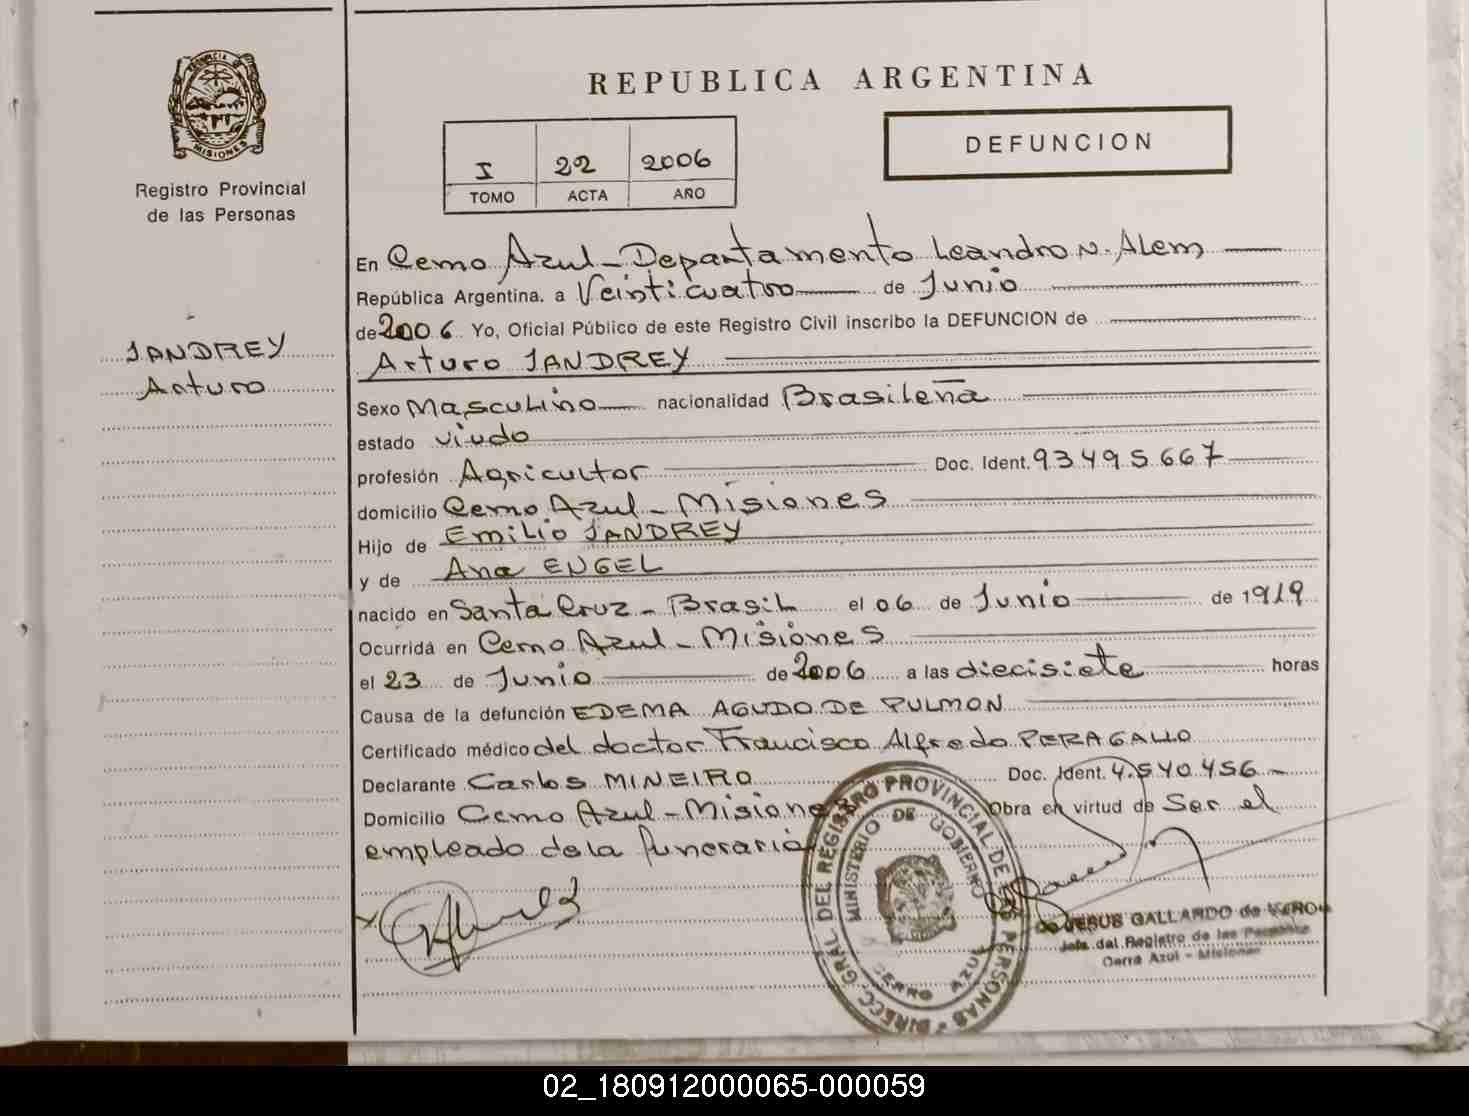 PROVINCIA DE
MISIONES
Registro Provincial
de las Personas
JANDREY
Arturo
REPUBLICA ARGENTINA
I 22 2006
TOMO ACTA AÑO
DEFUNCION
En Cerro Azul - Departamento Leandro N. Alem
República Argentina, a Veinticuatro de Junio
de 2006 Yo, Oficial Público de este Registro Civil inscribo la DEFUNCION de
Arturo JANDREY
Sexo Masculino nacionalidad Brasileña
estado viudo
profesión Agricultor Doc. Ident. 93495667
domicilio Cerro Azul - Misiones
Hijo de Emilio JANDREY
y de Ana ENGEL
nacido en Santa Cruz - Brasil el 06 de Junio de 1919
Ocurrida en Cerro Azul - Misiones
el 23 de Junio de 2006 a las diecisiete horas
Causa de la defunción EDEMA AGUDO DE PULMON
Certificado médico del doctor Francisco Alfredo PERAGALLO
Declarante Carlos MINEIRO Doc. Ident. 4.540.456
Domicilio Cerro Azul - Misiones Obra en virtud de Ser el
empleado de la funeraria
DIRECC. GRAL DEL REGISTRO PROVINCIAL DE LAS PERSONAS
MINISTERIO DE GOBIERNO
CERRO AZUL
JESUS GALLARDO de
Jefe del Registro de las Personas
Cerro Azul - Misiones
02_180912000065-000059